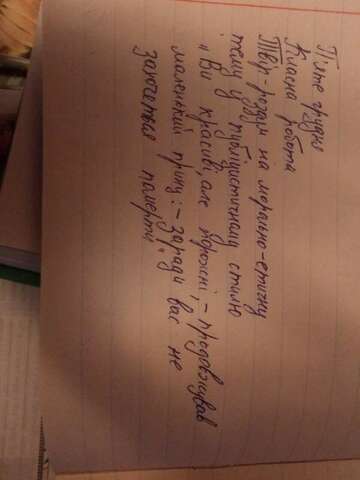 П'яте грудня
Класна робота
Твір-роздум на морально-етичну
тему у публіцистичному стилю
"Ви красиві, але порожні, - продовжував
маленький принц: - заради вас не
захочеться померти"